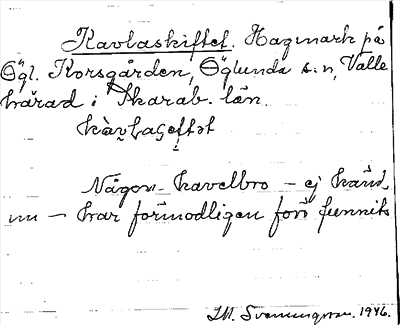 Kavlaskiftet. Hagmark på
Ögl. Korsgården, Öglunda s:n, Valle
härad i Skarab. län.
Någon kavelbro – ej känd
nu – har förmodligen förr funnits
J.M. Svenningsson. 1946.